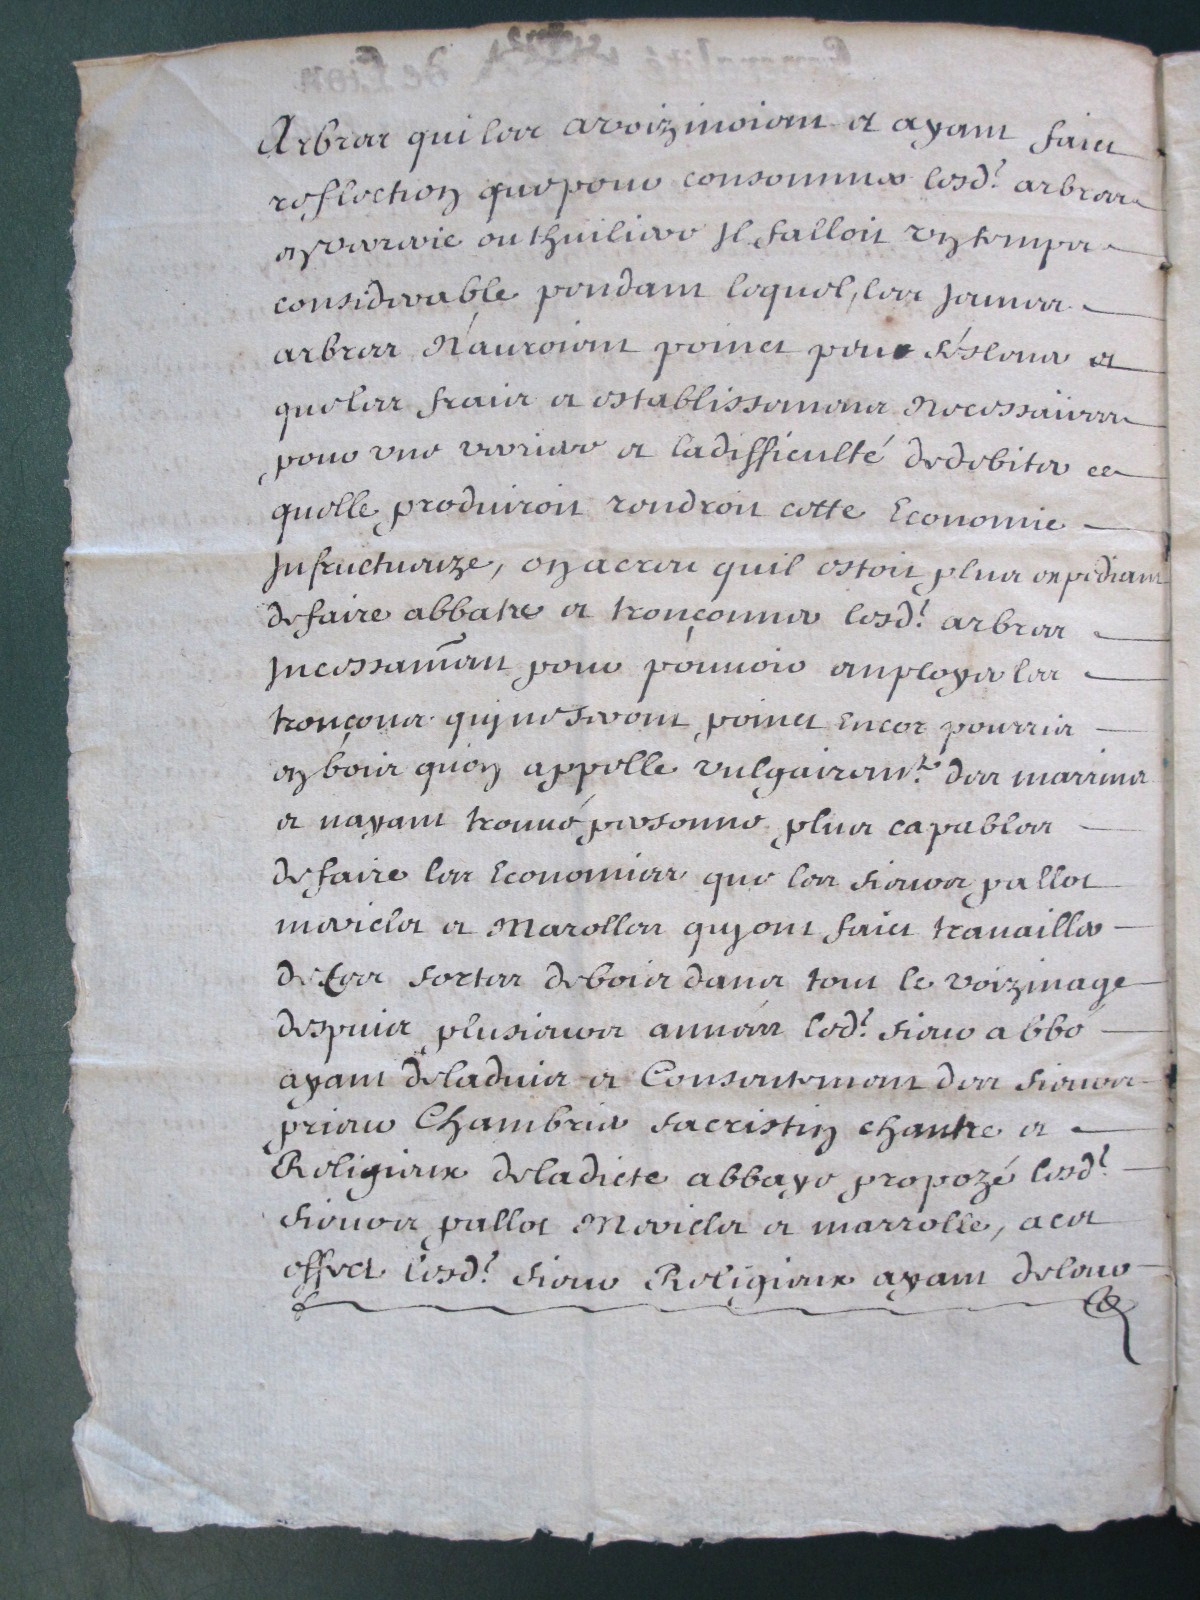 Arbres qui les avoizinoient et ayant faict
reflection que pour consommer lesd.^t arbres
en verrerie ou thuiliere Il falloit un temps
considerable pendant lequel, les Jeunes
arbres N'auroient poinct peu s'eslever et
que les fraix et establissemens Necessaires
pour une verriere et la difficulté de debiter ce
quelle produiroit rendroit cette Economie
Infructueuze, on a creu quil estoit plus expediant
de faire abbatre et tronçonner lesd.^t arbres
Incessamant pour pouuoir employer les
tronçons quy ne seront poinct encor pourris
en bois qu'on appelle vulgairem.^t des marrins
et nayant trouué personne plus capables
de faire les Economies que les sieurs pallot
mericlet et Marolles quy ont faict trauailler
de ses sortes de bois dans tout le voizinage
despuis plusieurs années led.^t sieur abbé
ayant de ladvis et Consentement des sieurs
prieur Chambrier sacristin chantre et
Religieux de ladicte abbaye propozé lesd.^t
sieurs pallot Mericlet et marrolle, a cet
effect lesd.^t sieur Religieux ayant de leur
Generalité
de Lion